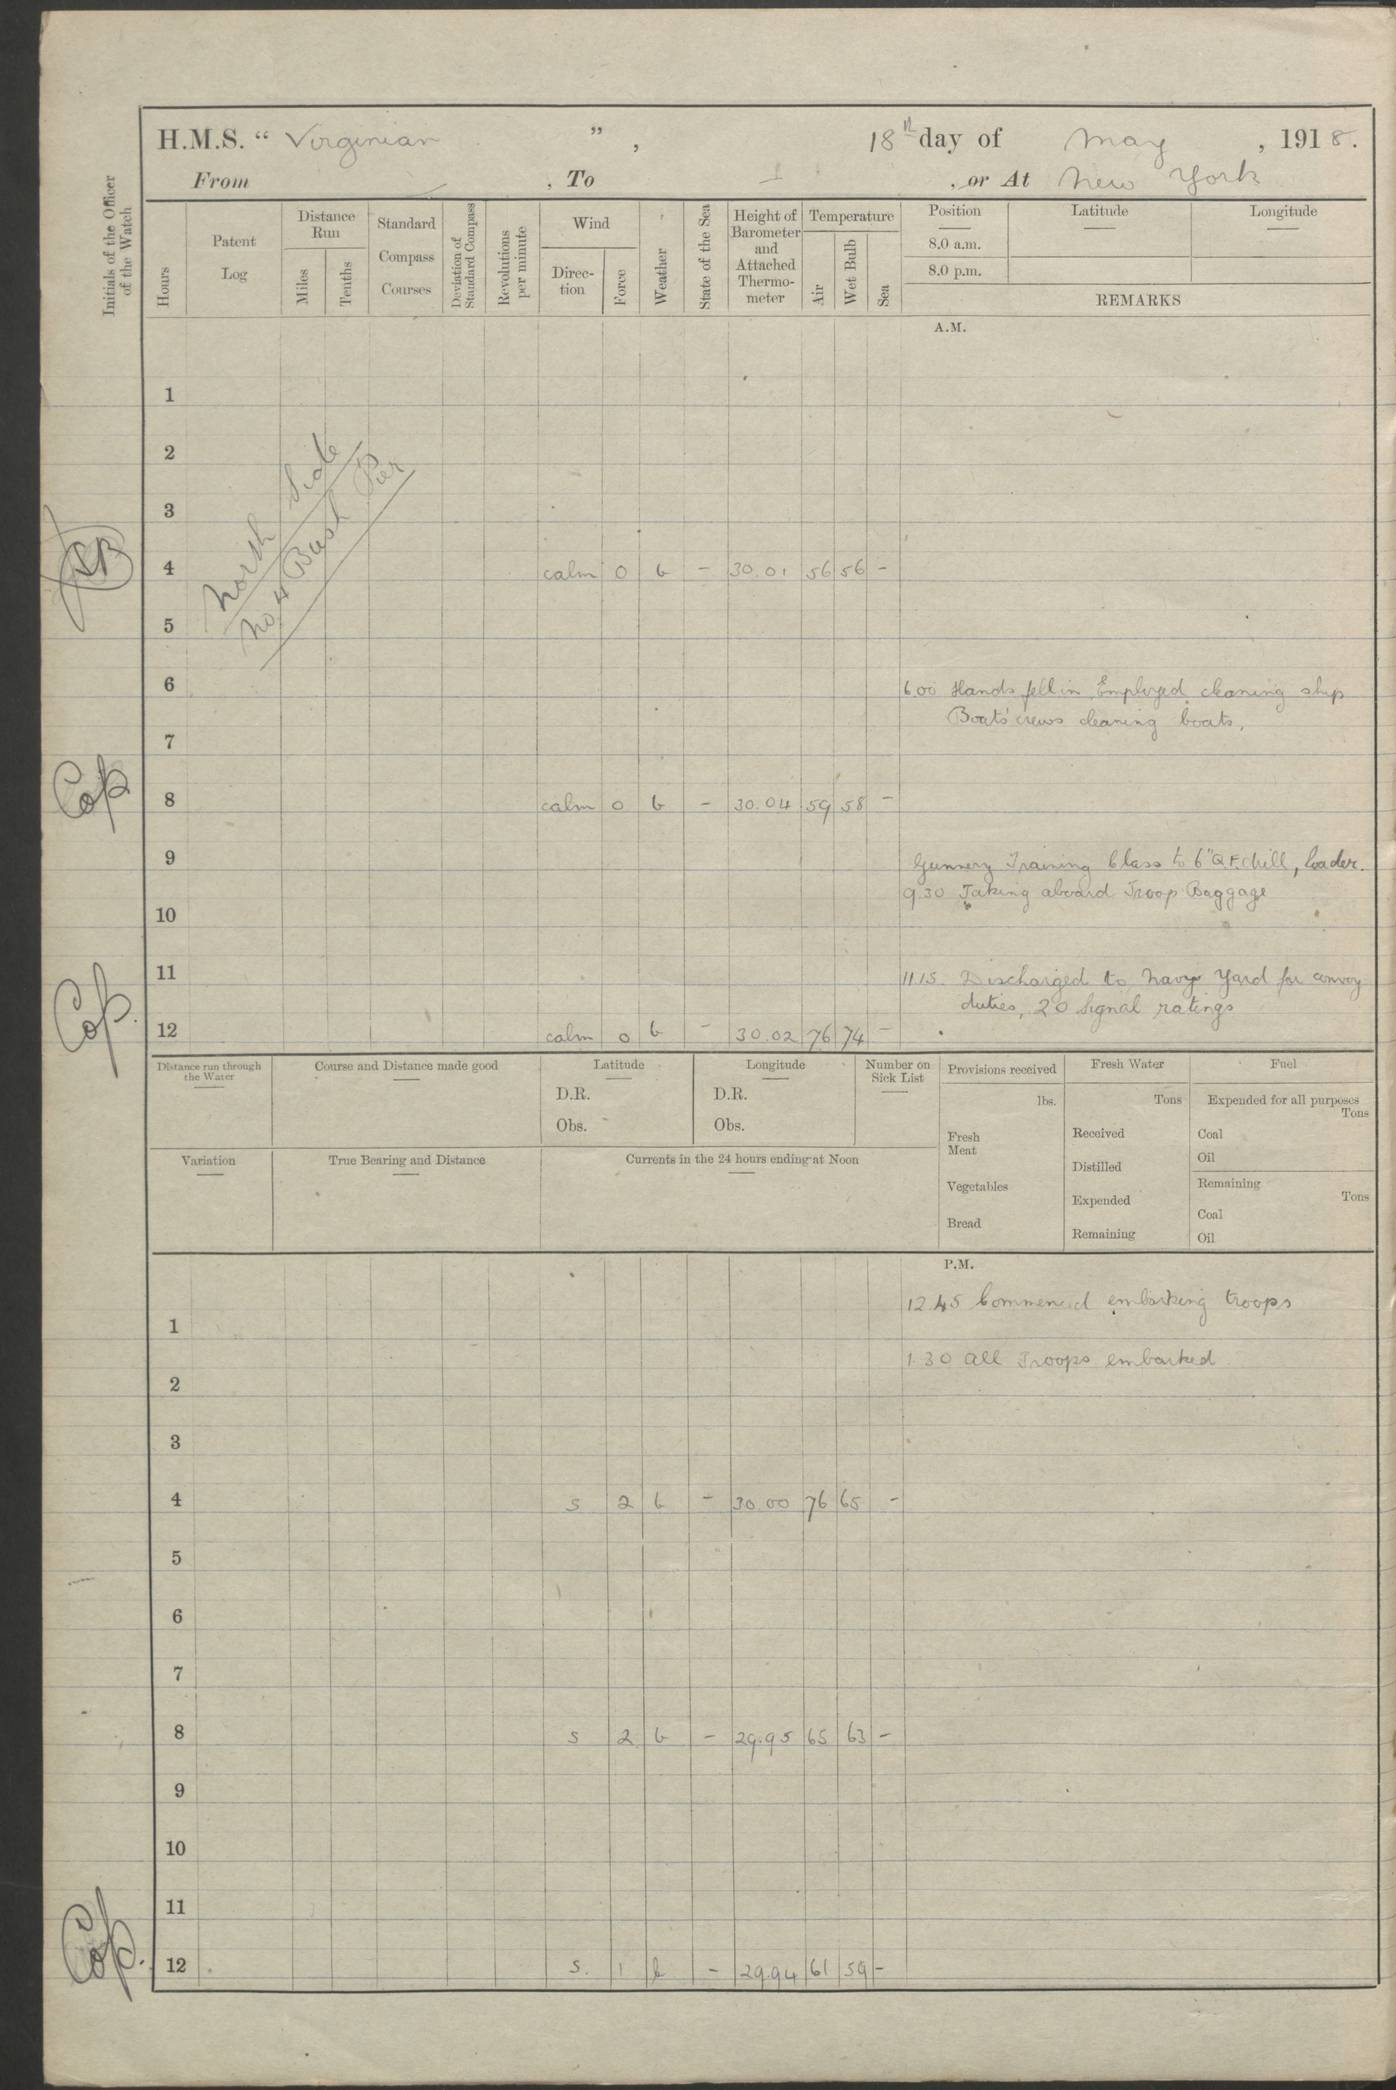 H.M.S. “ Virginian ”, 18th day of May, 1918.
From , To , or At New York
Initials of the Officer of the Watch
Hours
Patent Log
Distance Run
Miles
Tenths
Standard Compass Courses
Deviation of Standard Compass
Revolutions per minute
Wind
Direc-tion
Force
Weather
State of the Sea
Height of Barometer and Attached Thermo-meter
Temperature
Air
Wet Bulb
Sea
Position Latitude Longitude
8.0 a.m.
8.0 p.m.
REMARKS
A.M.
1
2
3
North Side
No 4 Bush Pier
4 calm 0 b - 30.01 56 56 -
5
6 6.00 Hands fell in. Employed cleaning ship
Boats' crews cleaning boats.
7
8 calm 0 b - 30.04 59 58 -
9 Gunnery Training Class to 6" Q.F. drill, loader.
9.30 Taking aboard Troop Baggage
10
11 11.15. Discharged to Navy Yard for convoy
duties, 20 Signal ratings
12 calm 0 b - 30.02 76 74 -
Distance run through the Water
Course and Distance made good
Latitude
D.R.
Obs.
Longitude
D.R.
Obs.
Number on Sick List
Provisions received
lbs.
Fresh Meat
Vegetables
Bread
Fresh Water
Tons
Received
Distilled
Expended
Remaining
Fuel
Expended for all purposes
Tons
Coal
Oil
Remaining
Tons
Coal
Oil
Variation
True Bearing and Distance
Currents in the 24 hours ending at Noon
P.M.
12.45 Commenced embarking troops
1
1.30 All Troops embarked
2
3
4 S 2 b - 30.00 76 65 -
5
6
7
8 S 2 b - 29.95 65 63 -
9
10
11
12 S. 1 b - 29.94 61 59 -